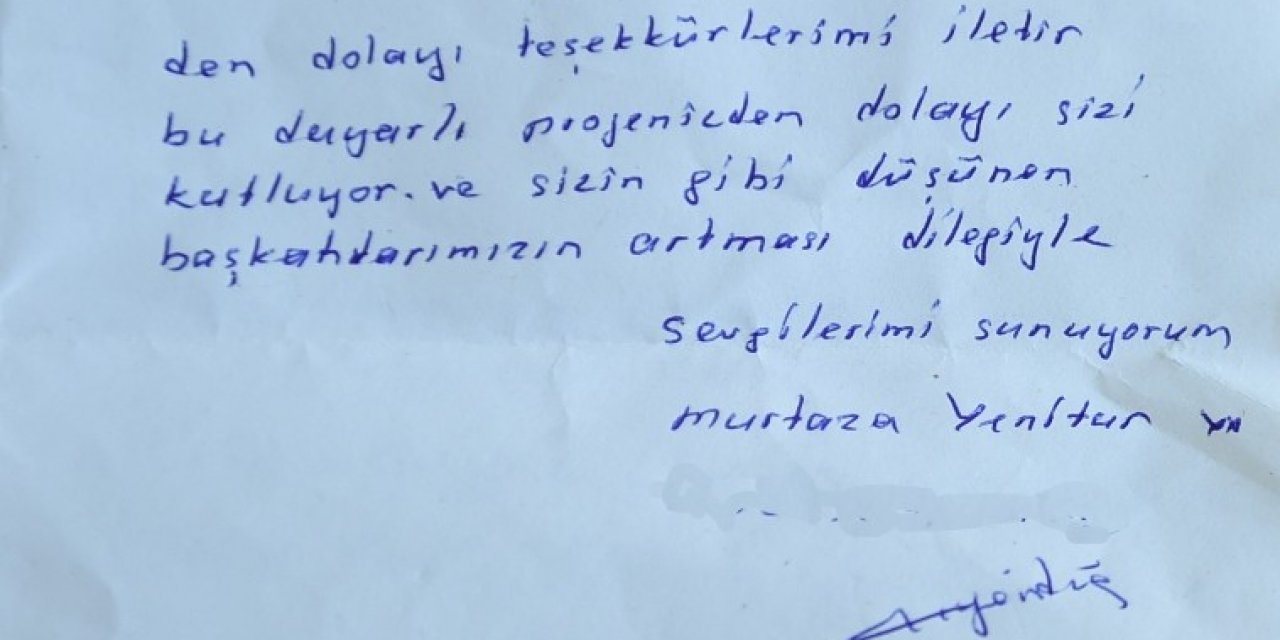 den dolayı teşekkürlerimi iletir
bu duyarlı projenizden dolayı sizi
kutluyor. ve sizin gibi düşünen
başkanlarımızın artması dileğiyle
sevgilerimi sunuyorum
murtaza Yenitur